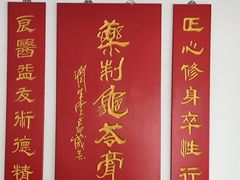 正心修身卒性行
藥制龜苓膏
良醫益友術德精